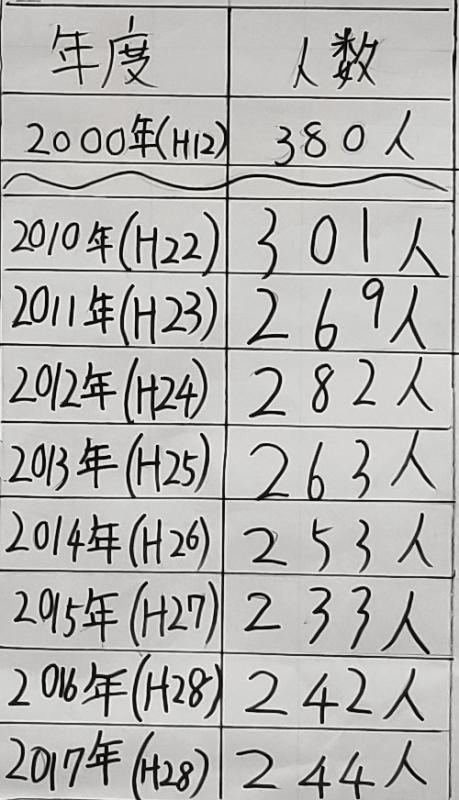 年度 人数
2000年(H12) 380人
2010年(H22) 301人
2011年(H23) 269人
2012年(H24) 282人
2013年(H25) 263人
2014年(H26) 253人
2015年(H27) 233人
2016年(H28) 242人
2017年(H28) 244人